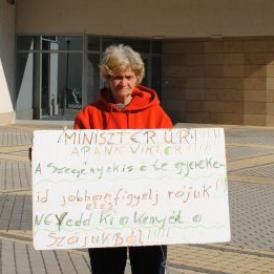 MINISZTER ÚR!!!
APÁNK VIKTOR!!!
A Szegények is a te gyereke-
id jobban figyelj rájuk!
eleg!
NE Vedd ki a kenyér a
SzájukBól!!!